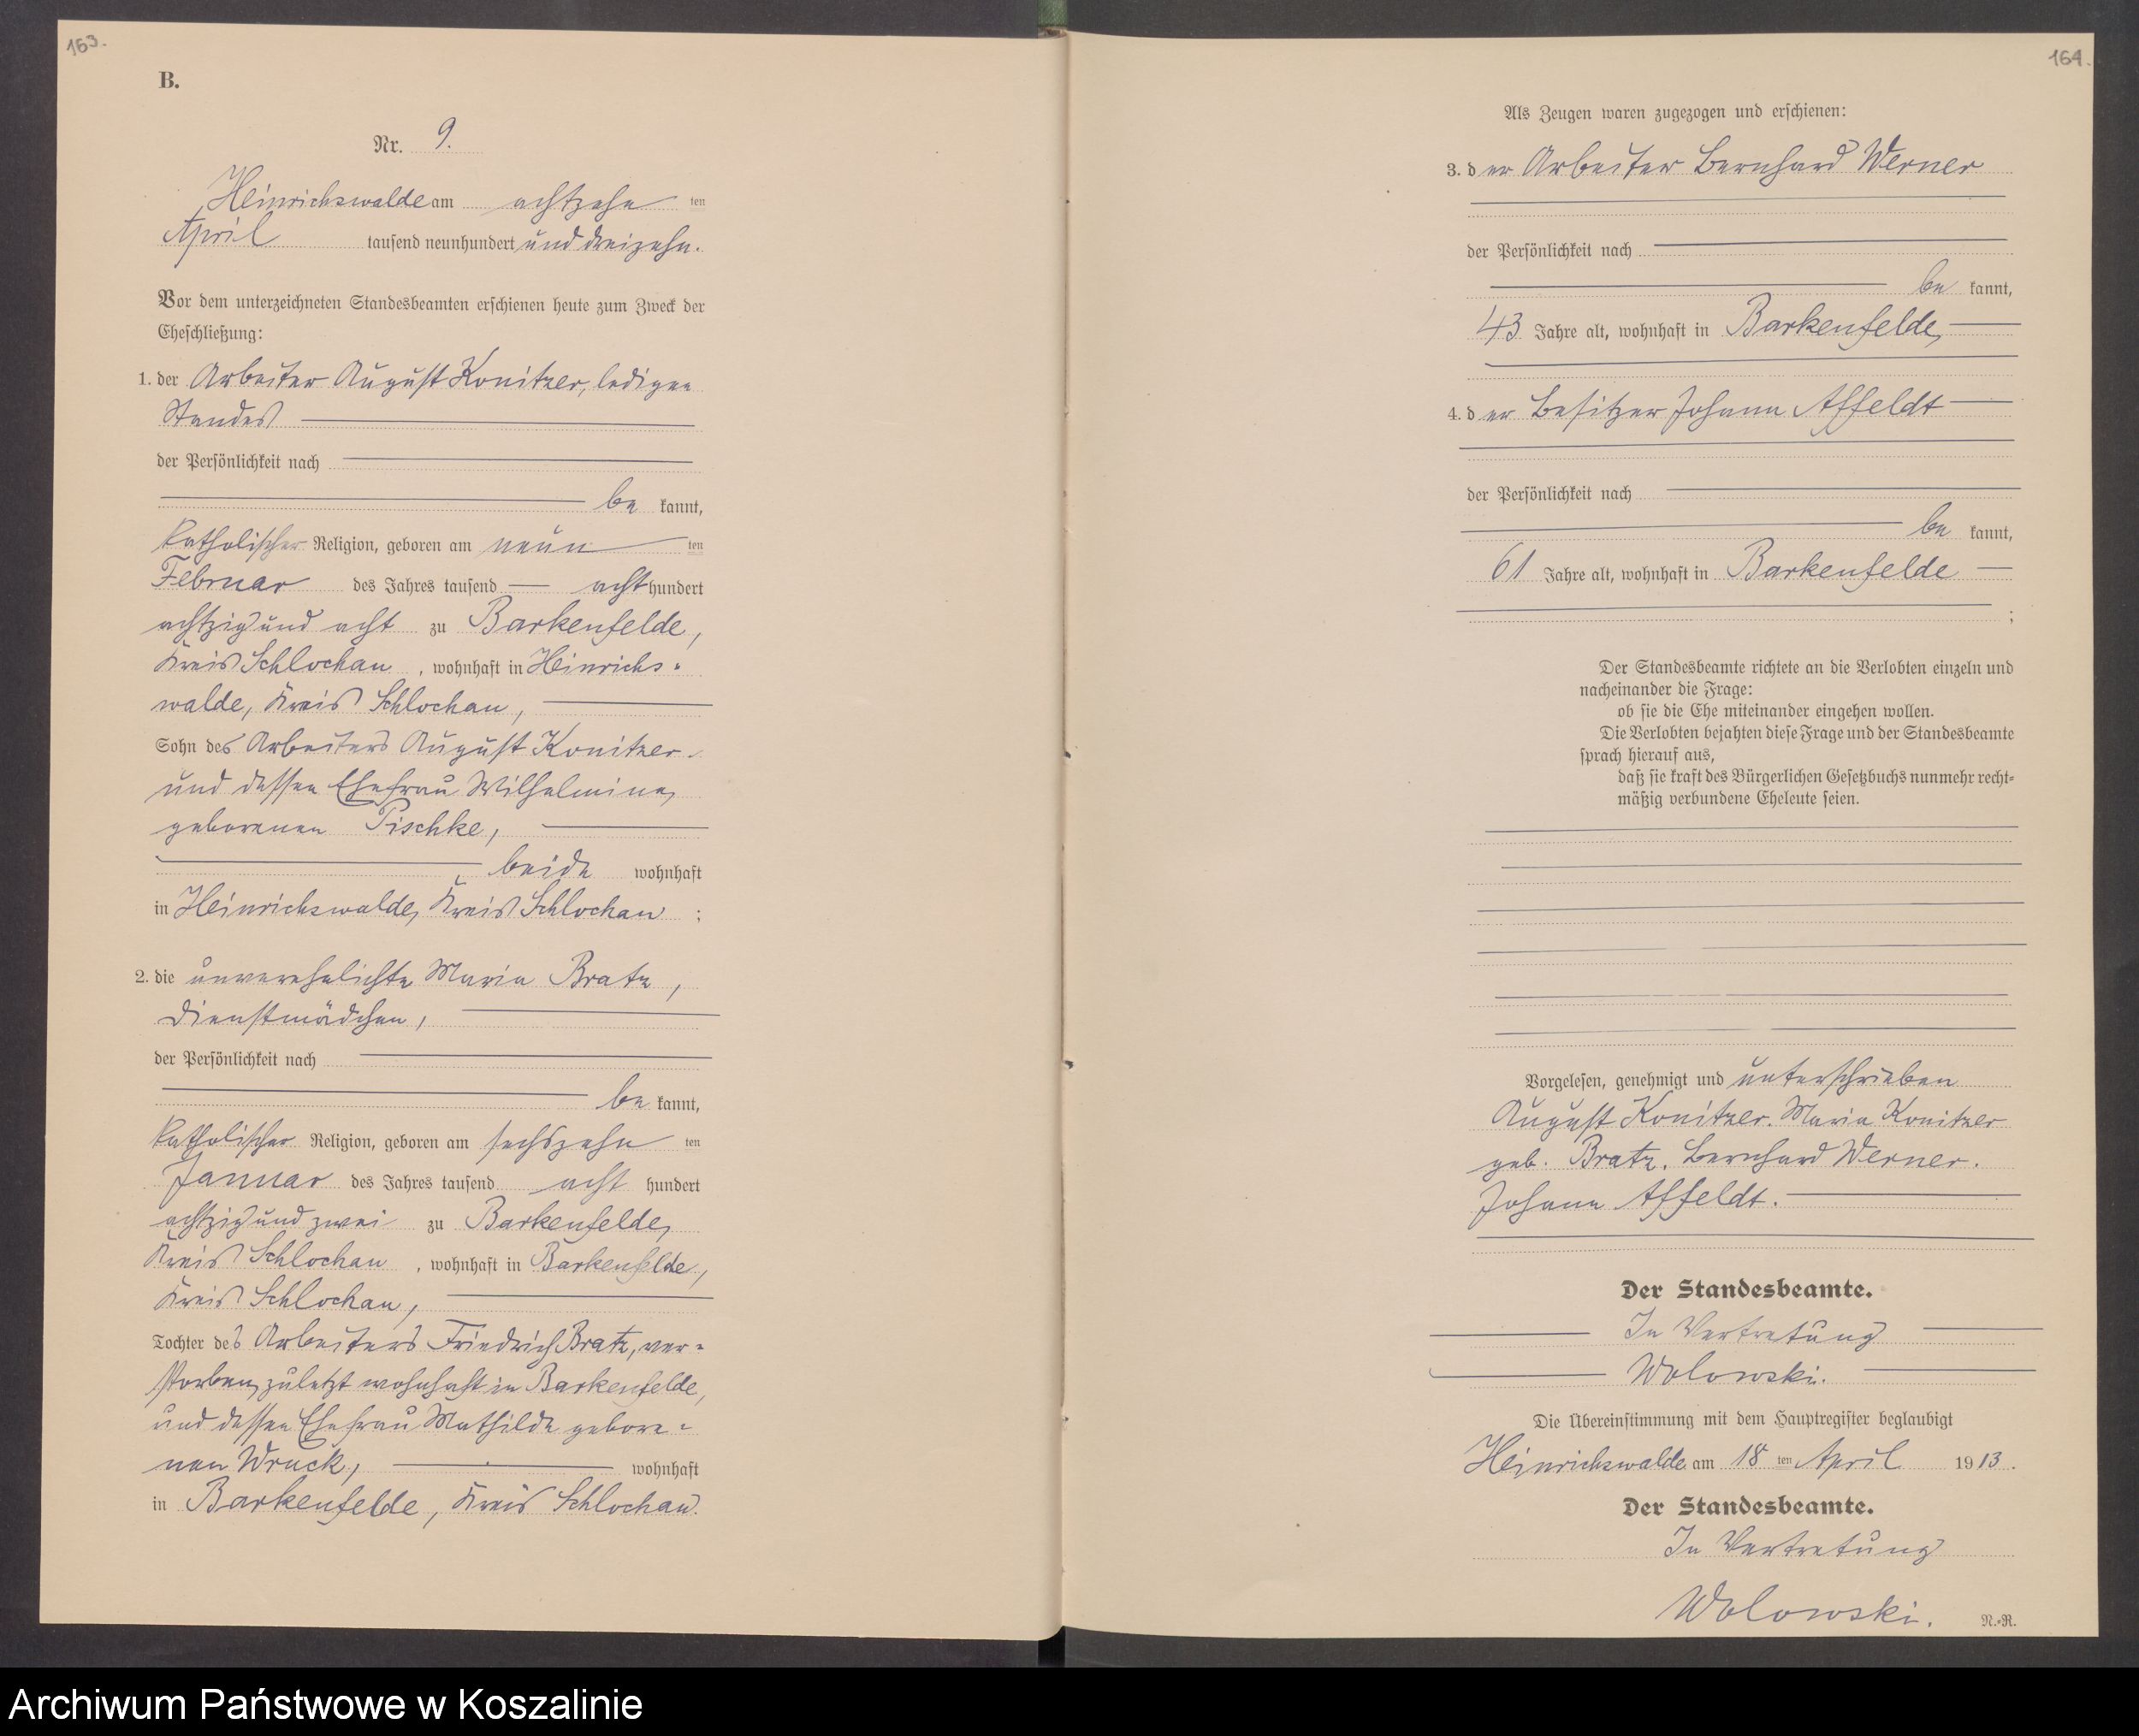 163.
B.
Nr. 9.
Heinrichswalde am achtzehn ten
April tausend neunhundert und dreizehn.
Vor dem unterzeichneten Standesbeamten erschienen heute zum Zweck der
Eheschließung:
1. der Arbeiter August Konitzer, ledigen
Standes
der Persönlichkeit nach
be kannt,
katholischer Religion, geboren am neun ten
Februar des Jahres tausend acht hundert
achtzig und acht zu Barkenfelde,
Kreis Schlochau, wohnhaft in Heinrichs-
walde, Kreis Schlochau,
Sohn des Arbeiters August Konitzer
und dessen Ehefrau Wilhelmine,
geborenen Pischke,
beide wohnhaft
in Heinrichswalde, Kreis Schlochau ;
2. die unverehelichte Maria Bratz,
Dienstmädchen,
der Persönlichkeit nach
be kannt,
katholischer Religion, geboren am sechszehn ten
Januar des Jahres tausend acht hundert
achtzig und zwei zu Barkenfelde,
Kreis Schlochau, wohnhaft in Barkenfelde,
Kreis Schlochau,
Tochter des Arbeiters Friedrich Bratz, ver-
storben, zuletzt wohnhaft in Barkenfelde,
und dessen Ehefrau Mathilde gebore-
nen Wruck, wohnhaft
in Barkenfelde, Kreis Schlochau.
164.
Als Zeugen waren zugezogen und erschienen:
3. der Arbeiter Bernhard Werner
der Persönlichkeit nach
be kannt,
43 Jahre alt, wohnhaft in Barkenfelde,
4. der Besitzer Johann Affeldt
der Persönlichkeit nach
be kannt,
61 Jahre alt, wohnhaft in Barkenfelde
;
Der Standesbeamte richtete an die Verlobten einzeln und
nacheinander die Frage:
ob sie die Ehe miteinander eingehen wollen.
Die Verlobten bejahten diese Frage und der Standesbeamte
sprach hierauf aus,
daß sie kraft des Bürgerlichen Gesetzbuchs nunmehr recht-
mäßig verbundene Eheleute seien.
Vorgelesen, genehmigt und unterschrieben
August Konitzer. Maria Konitzer
geb. Bratz. Bernhard Werner.
Johann Affeldt.
Der Standesbeamte.
In Vertretung
Wolowski.
Die Übereinstimmung mit dem Hauptregister beglaubigt
Heinrichswalde am 18 ten April 1913.
Der Standesbeamte.
In Vertretung
Wolowski.
N.-R.
Archiwum Państwowe w Koszalinie